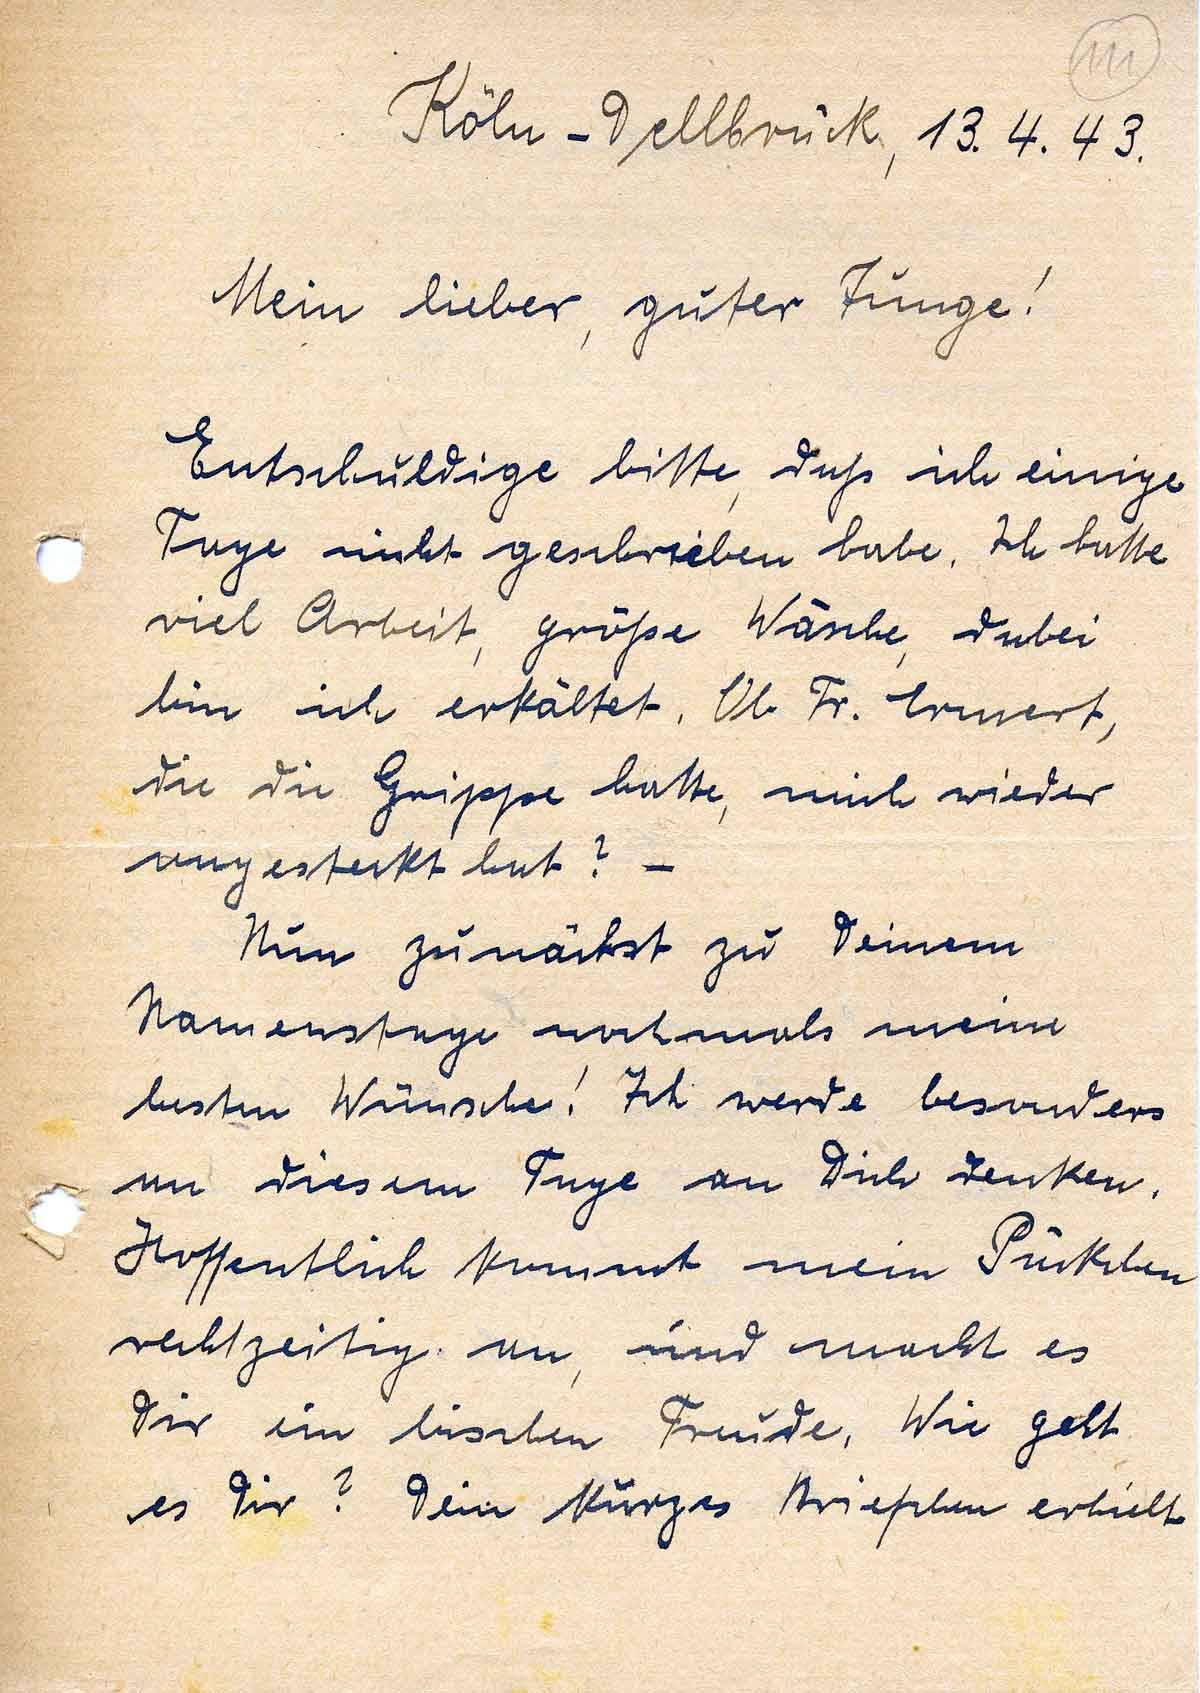 Köln-Dellbrück, 13.4.43.
Mein lieber, guter Junge!
Entschuldige bitte, daß ich einige
Tage nicht geschrieben habe. Ich hatte
viel Arbeit, große Wäsche, dabei
bin ich erkältet. Ob Fr. Ermert,
die die Grippe hatte, mich wieder
angesteckt hat? –
Nun zunächst zu Deinem
Namenstage nochmals meine
besten Wünsche! Ich werde besonders
an diesem Tage an Dich denken.
Hoffentlich kommt mein Päckchen
rechtzeitig an, und macht es
Dir ein bischen Freude. Wie geht
es Dir? Dein kurzes Briefchen erhielt